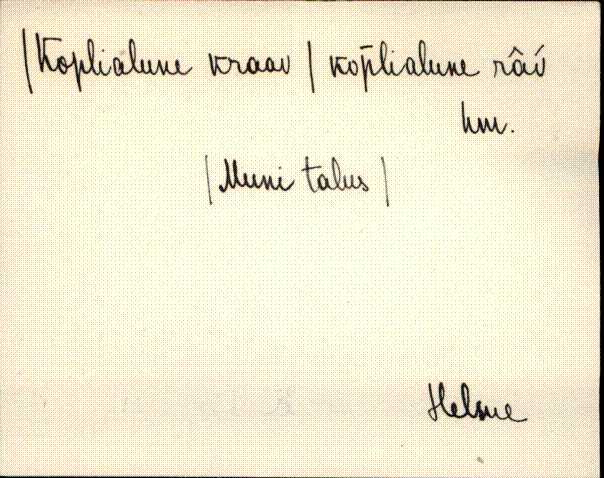 |Koplialune kraav | kop̄lialune râv́
hm.
|Muni talus|
Helme